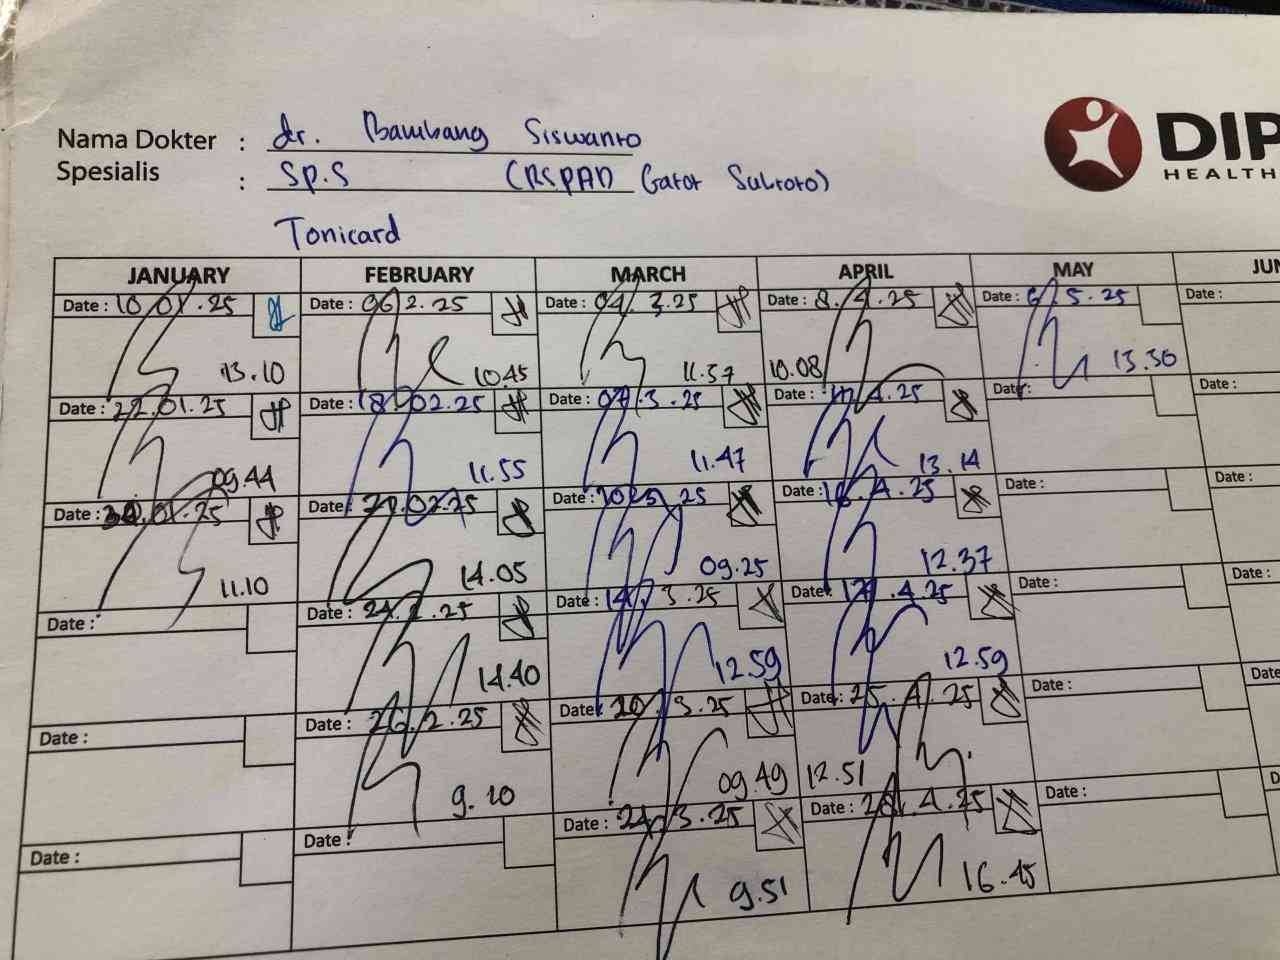 Nama Dokter : dr. Bambang Siswanto
Spesialis : Sp.S (RSPAD Gatot Subroto)
DIP
HEALTH
Tonicard
JANUARY FEBRUARY MARCH APRIL MAY JUN
Date : 10.01.25 Date : 06.2.25 Date : 04.3.25 Date : 8.4.25 Date : 6.5.25 Date :
13.10 10.45 11.37 10.08 13.30
Date : 22.01.25 Date : 18.02.25 Date : 07.3.25 Date : 4.25 Date : Date :
09.44 11.55 11.47 13.14
Date : 30.01.25 Date : 21.02.25 Date : 10.3.25 Date : 16.4.25 Date : Date :
11.10 14.05 09.25 12.37
Date : Date : 24.2.25 Date : 14.3.25 Date : 17.4.25 Date : Date :
14.40 12.59 12.59
Date : Date : 26.2.25 Date : 20.3.25 Date : 25.4.25 Date : Date
9.10 09.49 12.51
Date : Date : Date : 24.3.25 Date : 28.4.25 Date : D
9.51 16.45